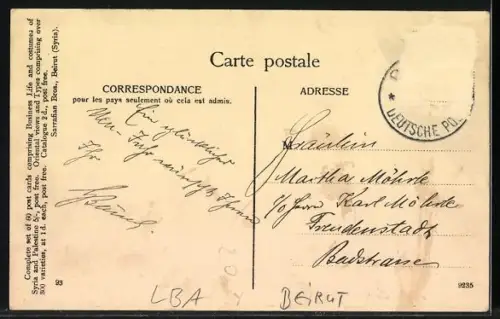 Complete set of 60 post cards comprising Business Life and costumes of
Syria and Palestine 5/-, post free. Oriental views and Types comprising over
800 varieties, at 1d. each, post free. Catalogue 2d., post free.
Sarrafian Bros., Beirut (Syria).
Carte postale
CORRESPONDANCE
pour les pays seulement où cela est admis.
ADRESSE
DEUTSCHE PO
Ein glückliches
Neu-Jahr wünscht Ihnen
Ihr
Fräulein
Martha Möhrle
c/o Herrn Karl Möhrle
Freudenstadt
Badstrasse
93
9235
LBA
BEIRUT